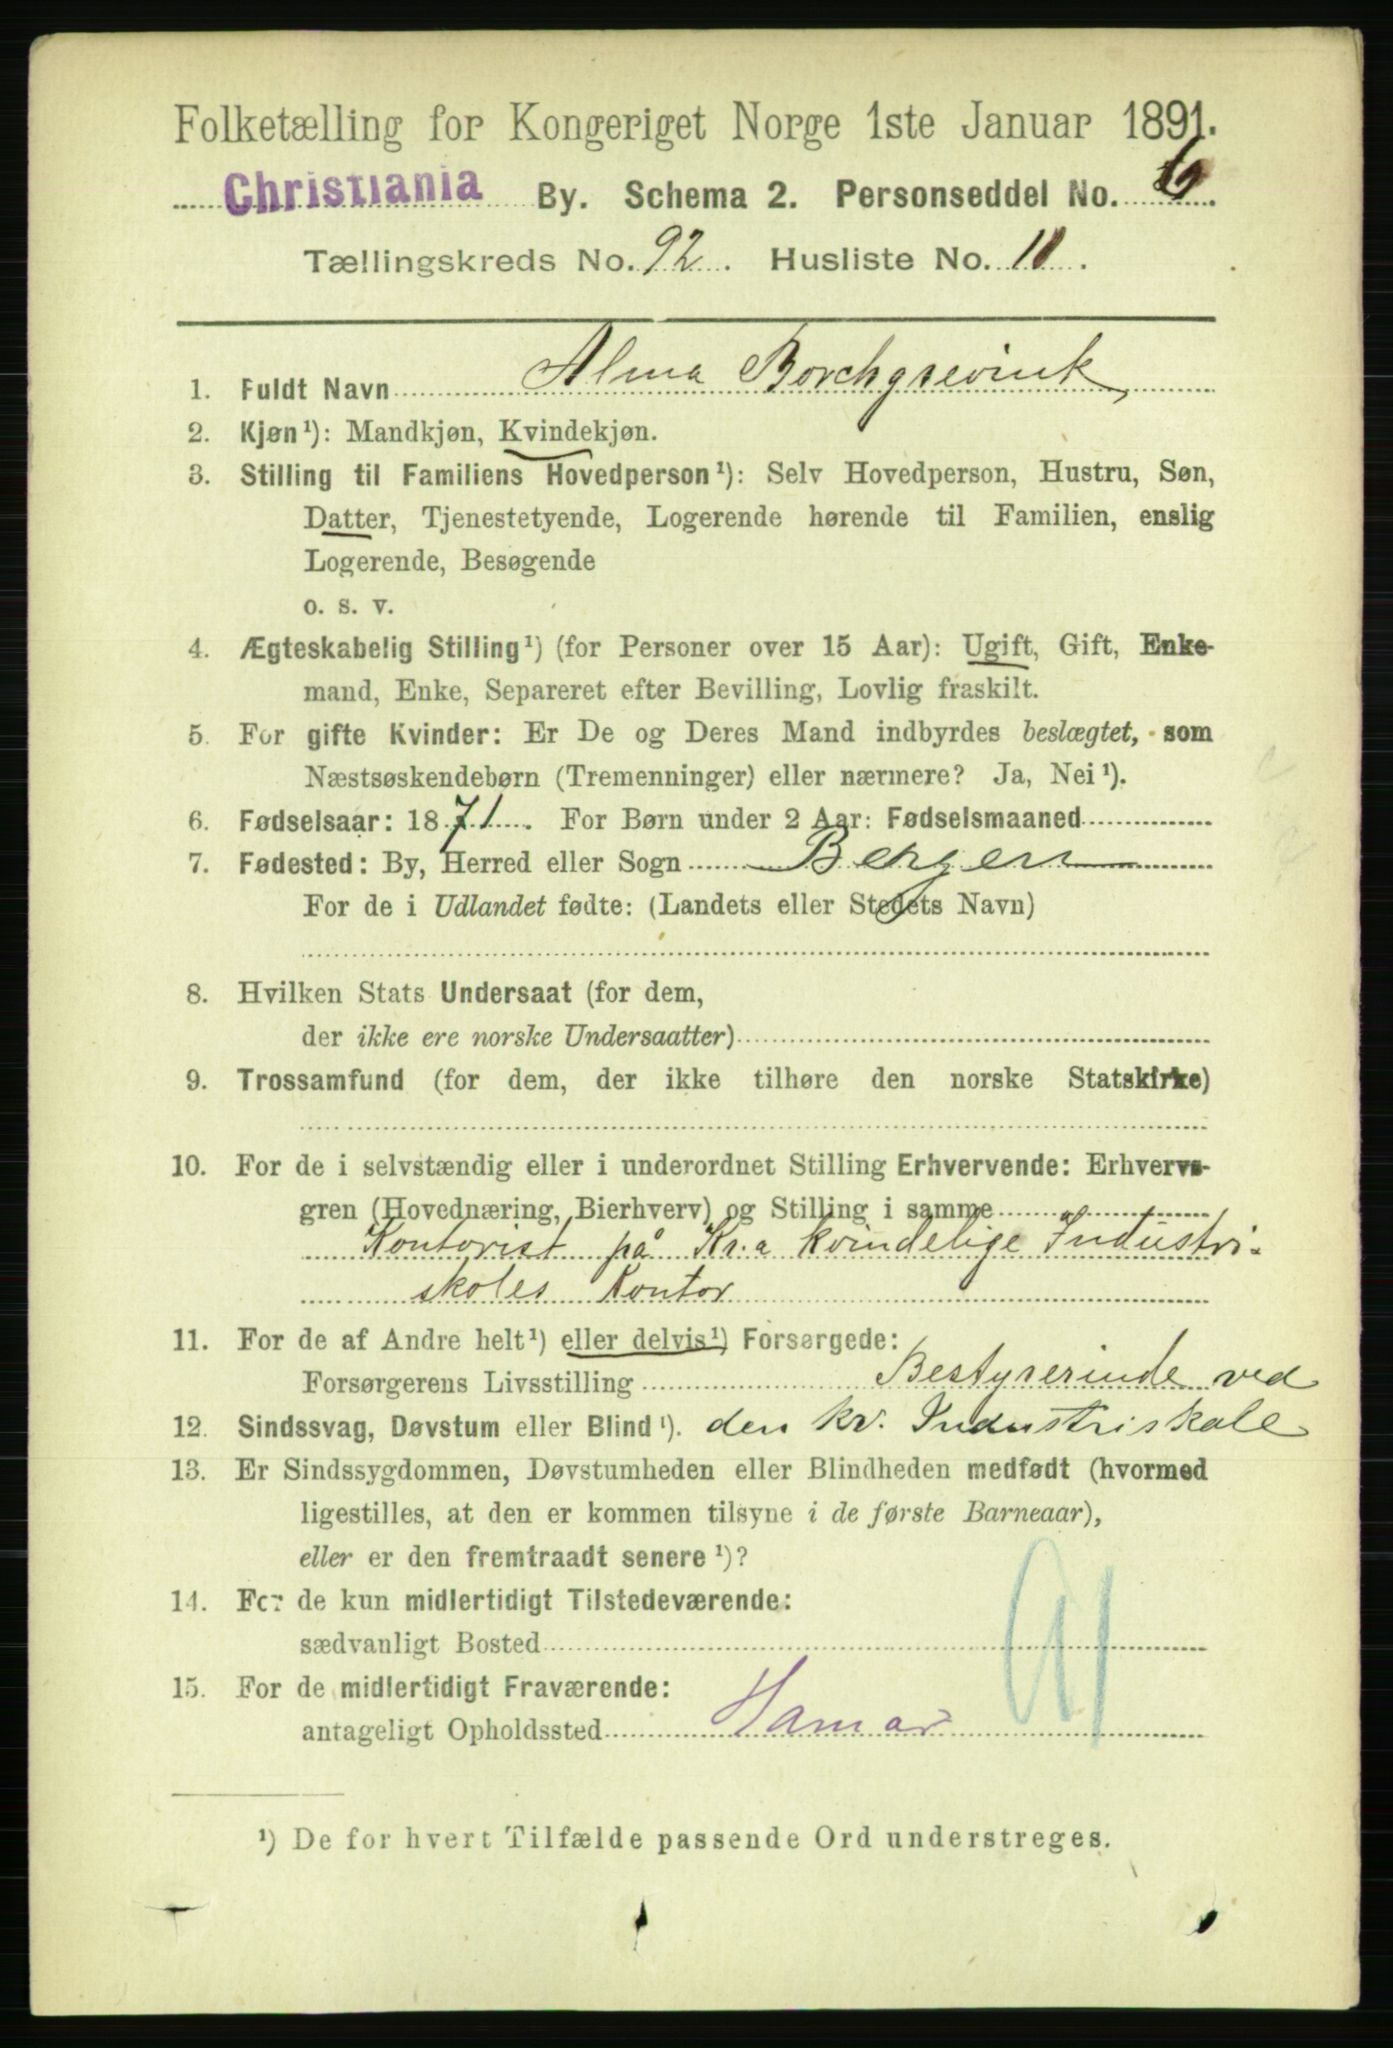 Folketælling for Kongeriget Norge 1ste Januar 1891.
Christiania By. Schema 2. Personseddel No. 6.
Tællingskreds No. 92. Husliste No. 10.
1. Fuldt Navn Alma Borchgrevink
2. Kjøn¹): Mandkjøn, Kvindekjøn.
3. Stilling til Familiens Hovedperson¹): Selv Hovedperson, Hustru, Søn,
Datter, Tjenestetyende, Logerende hørende til Familien, enslig
Logerende, Besøgende
o. s. v.
4. Ægteskabelig Stilling¹) (for Personer over 15 Aar): Ugift, Gift, Enke-
mand, Enke, Separeret efter Bevilling, Lovlig fraskilt.
5. For gifte Kvinder: Er De og Deres Mand indbyrdes beslægtet, som
Næstsøskendebørn (Tremenninger) eller nærmere? Ja, Nei¹).
6. Fødselsaar: 1871. For Børn under 2 Aar: Fødselsmaaned
7. Fødested: By, Herred eller Sogn Bergen
For de i Udlandet fødte: (Landets eller Stedets Navn)
8. Hvilken Stats Undersaat (for dem,
der ikke ere norske Undersaatter)
9. Trossamfund (for dem, der ikke tilhøre den norske Statskirke)
10. For de i selvstændig eller i underordnet Stilling Erhvervende: Erhvervs-
gren (Hovednæring, Bierhverv) og Stilling i samme
Kontorist på Kr.a kvindelige Industri-
skoles Kontor
11. For de af Andre helt¹) eller delvis¹) Forsørgede:
Forsørgerens Livsstilling Bestyrerinde ved
12. Sindssvag, Døvstum eller Blind¹). den kv. Industriskole
13. Er Sindssygdommen, Døvstumheden eller Blindheden medfødt (hvormed
ligestilles, at den er kommen tilsyne i de første Barneaar),
eller er den fremtraadt senere¹)?
14. For de kun midlertidigt Tilstedeværende:
sædvanligt Bosted
15. For de midlertidigt Fraværende:
antageligt Opholdssted Hamar
¹) De for hvert Tilfælde passende Ord understreges.